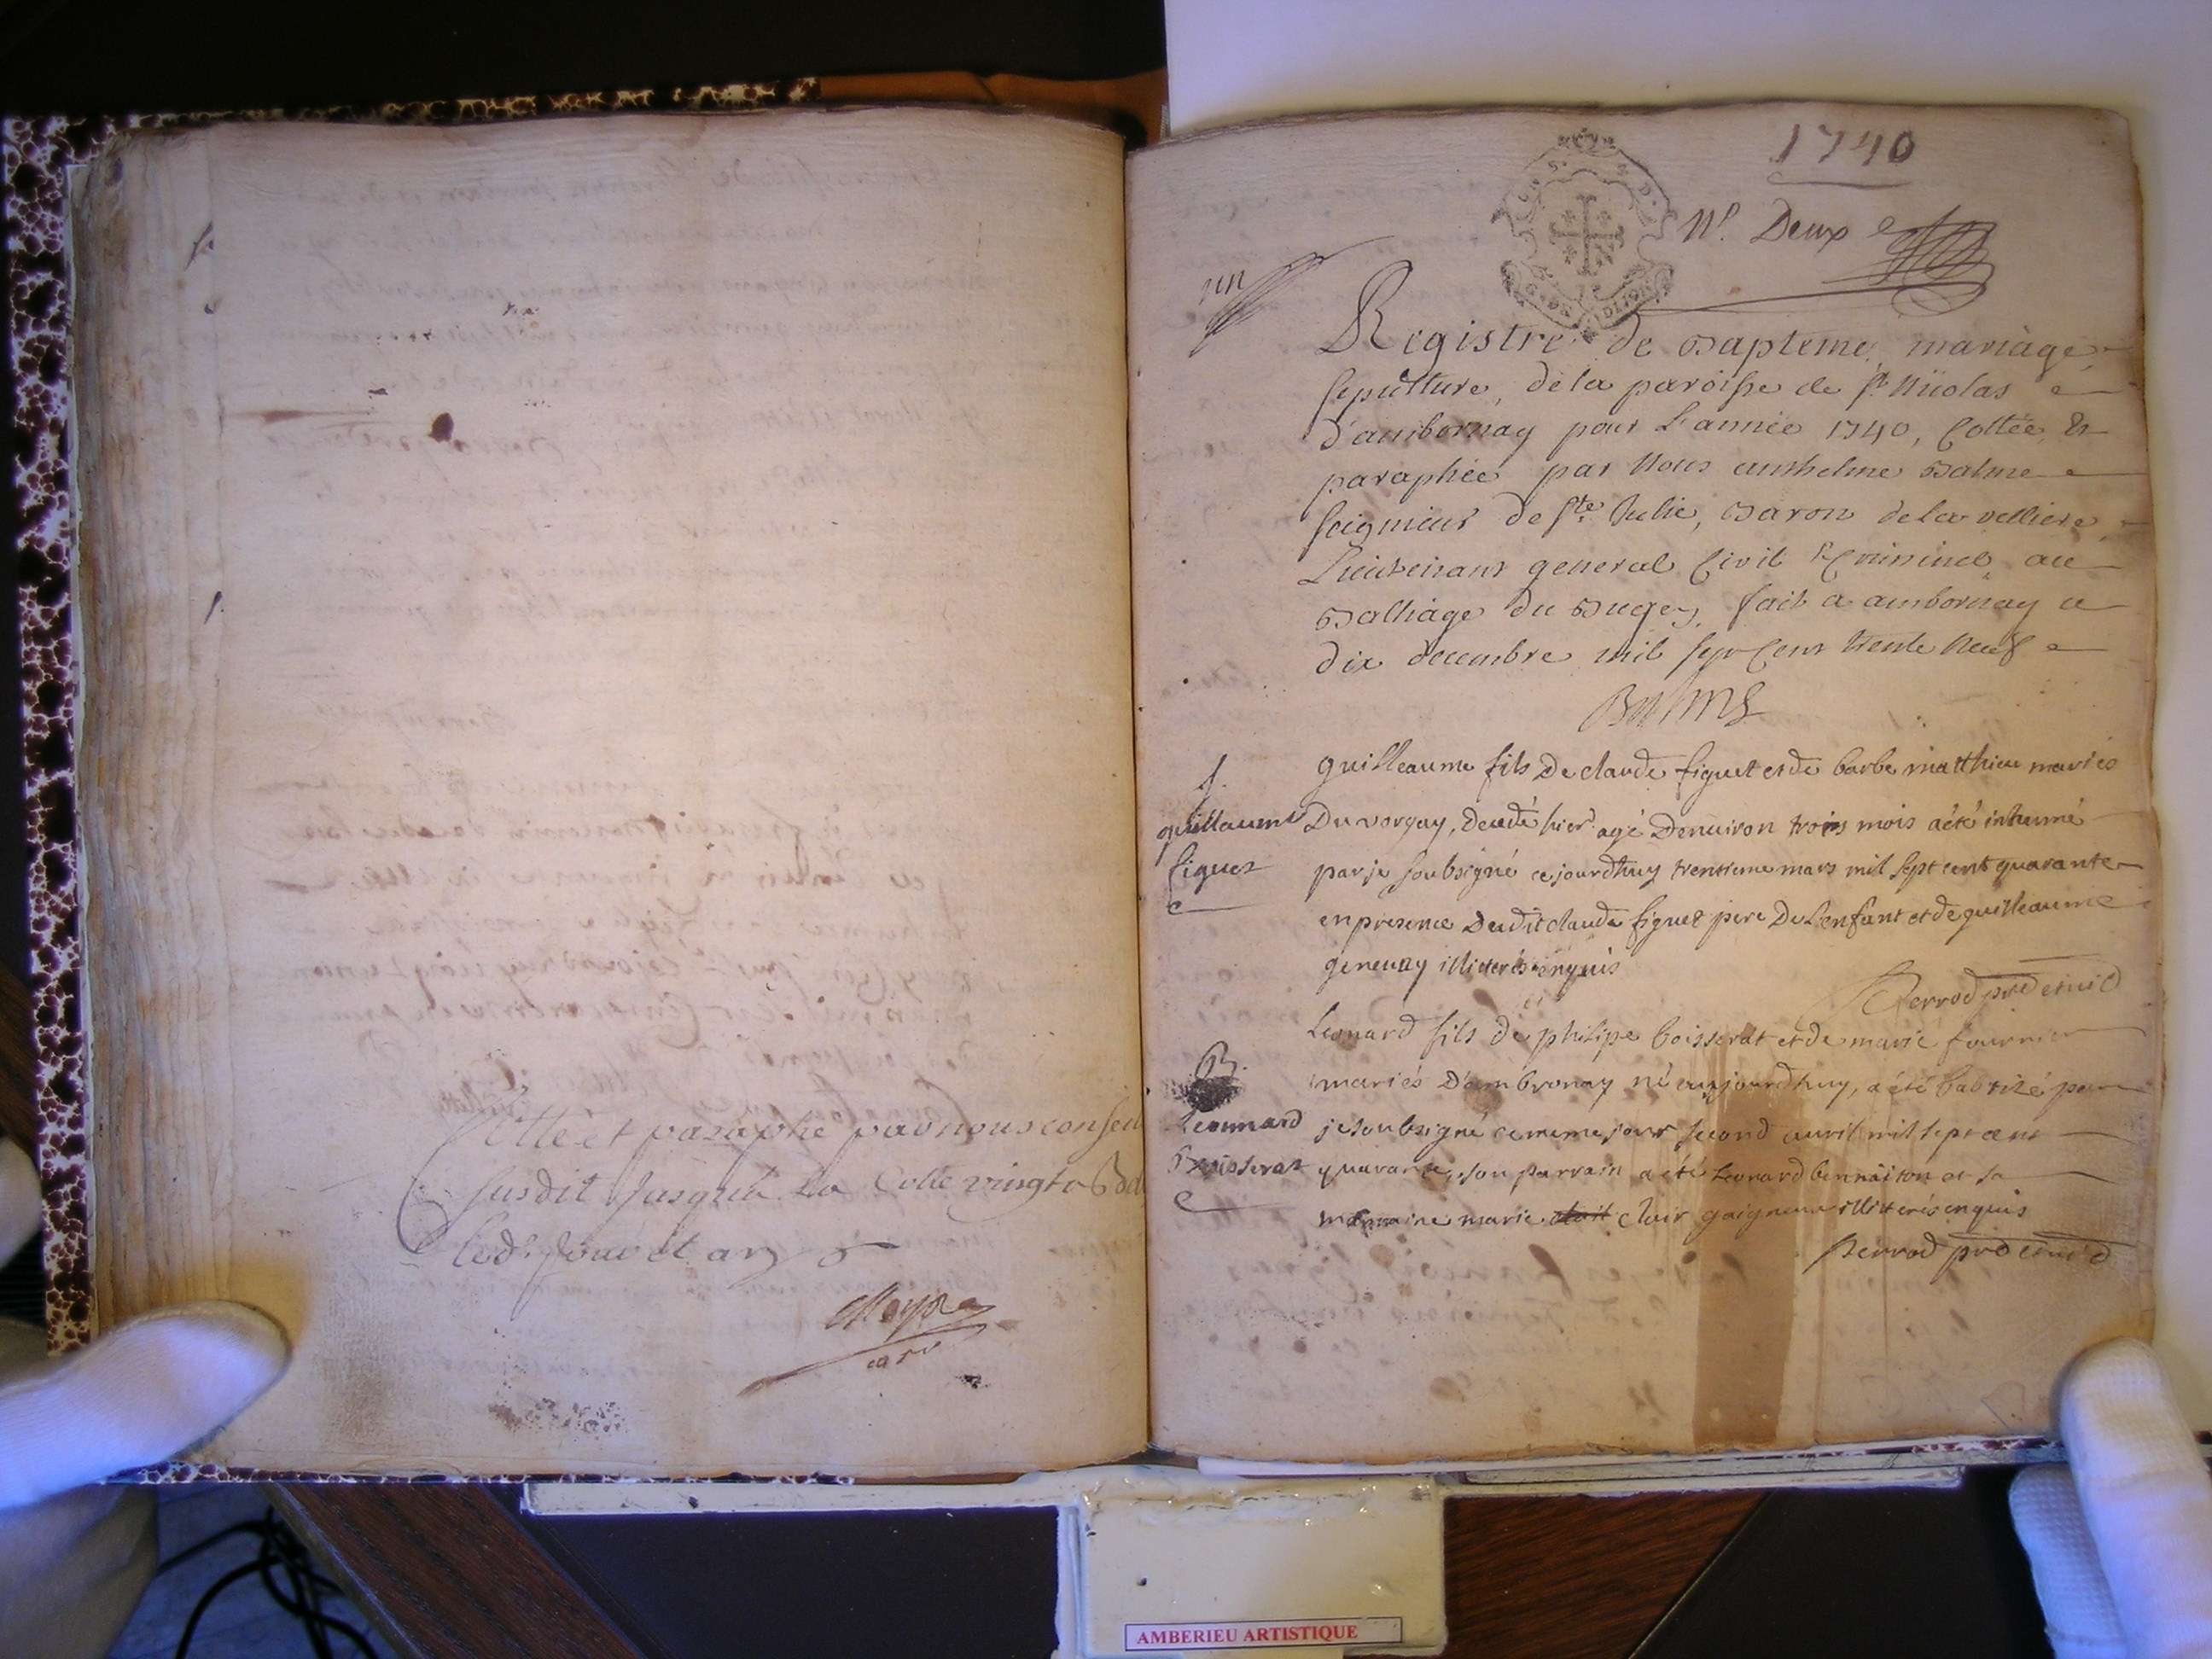 Cotté et paraphé par nous conseil
susdit jusqu'a la Cotte vingt et
led. jour et an
1740
N.º Deux
un
Registre de Bapteme, mariàge
sepulture, de la paroisse de st Nicolas
d'ambornay pour L'année 1740, Cottée &
paraphée par Nous anthelme Balme
seigneur de ste Julie, Baron de la velliere,
Lieutenant general Civil & Criminel au
Balliage du Bugey, fait a ambornay ce
dix decembre mil sept Cent trente Neuf
Balme
guilleaume fils De claude figuet et de barbe matthieu mariés
Du vorgay, decedé hier agé Denuiron trois mois a été inhumé
par je soubsigné ce jourdhuy trentieme mars mil sept cent quarante
en presence Dudit claude figuet pere De Lenfant et de guilleaume
geneuay illiterés enquis
S.
guillaume
figuet
Perrod
Leonard fils de philipe boisserat et de marie fournier
mariés D'ambronay né aujourdhuy, a été babtizé par
je soubsigné ce meme jour second auril mil sept cent
quarante, son parrain a été Leonard bennaiton et sa
marraine marie clair gaigneur illiterés enquis
B.
Leonnard
Boisserat
Perrod
AMBERIEU ARTISTIQUE